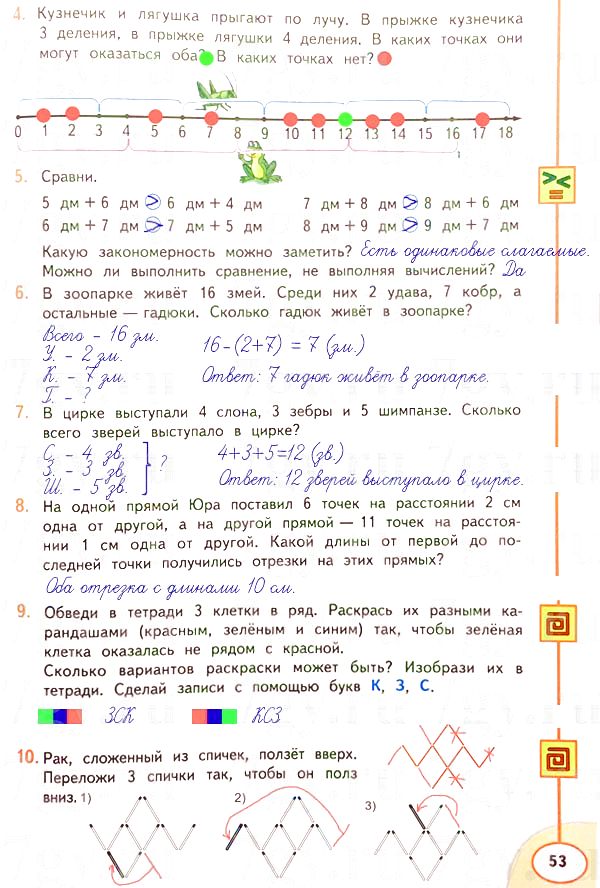 4. Кузнечик и лягушка прыгают по лучу. В прыжке кузнечика
3 деления, в прыжке лягушки 4 деления. В каких точках они
могут оказаться оба? В каких точках нет?
0 1 2 3 4 5 6 7 8 9 10 11 12 13 14 15 16 17 18
5. Сравни.
5 дм + 6 дм > 6 дм + 4 дм 7 дм + 8 дм > 8 дм + 6 дм
6 дм + 7 дм > 7 дм + 5 дм 8 дм + 9 дм > 9 дм + 7 дм
Какую закономерность можно заметить? Есть одинаковые слагаемые.
Можно ли выполнить сравнение, не выполняя вычислений? Да
6. В зоопарке живёт 16 змей. Среди них 2 удава, 7 кобр, а
остальные — гадюки. Сколько гадюк живёт в зоопарке?
Всего - 16 зм.
У. - 2 зм.
К. - 7 зм.
Г. - ?
16-(2+7) = 7 (зм.)
Ответ: 7 гадюк живёт в зоопарке.
7. В цирке выступали 4 слона, 3 зебры и 5 шимпанзе. Сколько
всего зверей выступало в цирке?
С. - 4 зв.
З. - 3 зв.
Ш. - 5 зв.
?
4+3+5=12 (зв.)
Ответ: 12 зверей выступало в цирке.
8. На одной прямой Юра поставил 6 точек на расстоянии 2 см
одна от другой, а на другой прямой — 11 точек на расстоя-
нии 1 см одна от другой. Какой длины от первой до по-
следней точки получились отрезки на этих прямых?
Оба отрезка с длинами 10 см.
9. Обведи в тетради 3 клетки в ряд. Раскрась их разными ка-
рандашами (красным, зелёным и синим) так, чтобы зелёная
клетка оказалась не рядом с красной.
Сколько вариантов раскраски может быть? Изобрази их в
тетради. Сделай записи с помощью букв К, З, С.
ЗСК КСЗ
10. Рак, сложенный из спичек, ползёт вверх.
Переложи 3 спички так, чтобы он полз
вниз. 1) 2) 3)
53